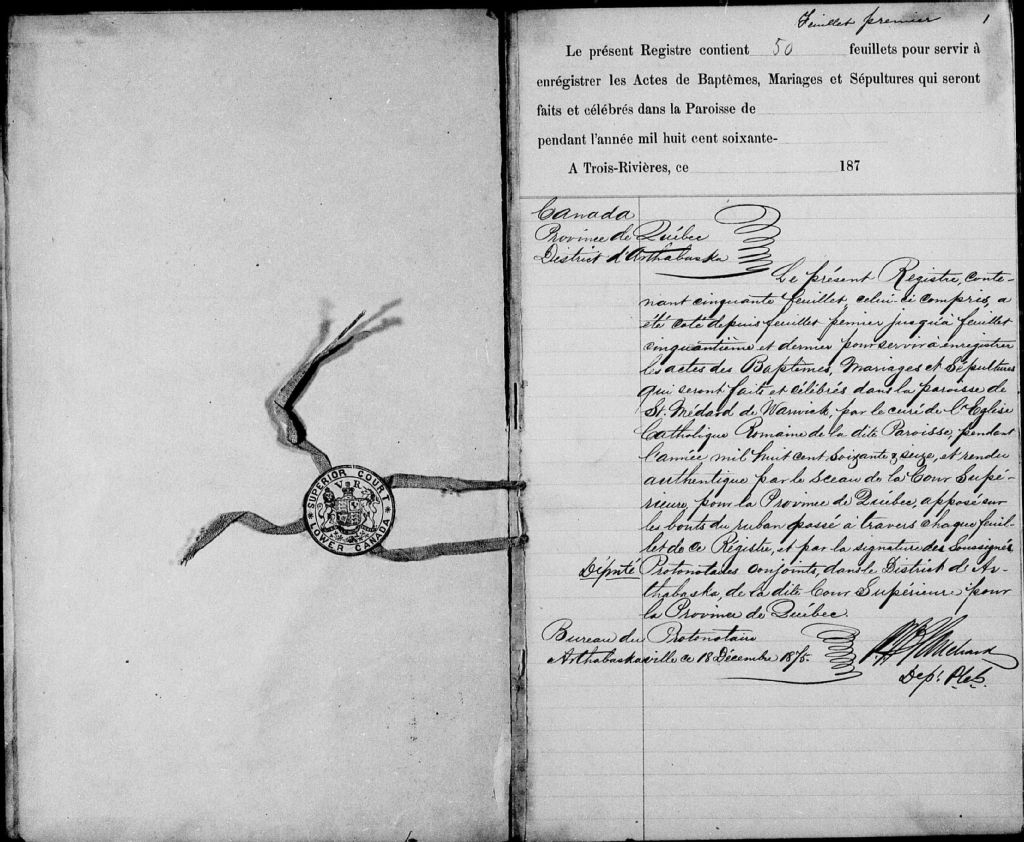 SUPERIOR COURT
V R
LOWER CANADA
Feuillet premier 1
Le présent Registre contient 50 feuillets pour servir à
enrégistrer les Actes de Baptêmes, Mariages et Sépultures qui seront
faits et célébrés dans la Paroisse de
pendant l'année mil huit cent soixante-
A Trois-Rivières, ce 187
Canada
Province de Québec
District d'Arthabaska
Le présent Registre, conte-
nant cinquante feuillet, celui-ci compris, a
été coté depuis feuillet pemier jusqu'à feuillet
cinquantième et dernier pour servir à enregistrer
les actes des Baptêmes, Mariages et Sépultures
qui seront faits et célébrés dans la paroisse de
St. Médard de Warwick, par le curé de l'Eglise
Catholique Romaine de la dite Paroisse, pendant
l'année mil huit cent soixante & seize, et rendu
authentique par le Sceau de la Cour Supé-
rieure pour la Province de Québec, apposé sur
les bouts du ruban passé à travers chaque feuil-
let de ce Régistre, et par la signature des Soussignés
Député Protonotaires conjoints, dans le District d'Ar-
thabaska, de la dite Cour Supérieure pour
la Province de Québec.
Bureau du Protonotaire
Arthabaskaville ce 18 Décembre 1875.
Dep.